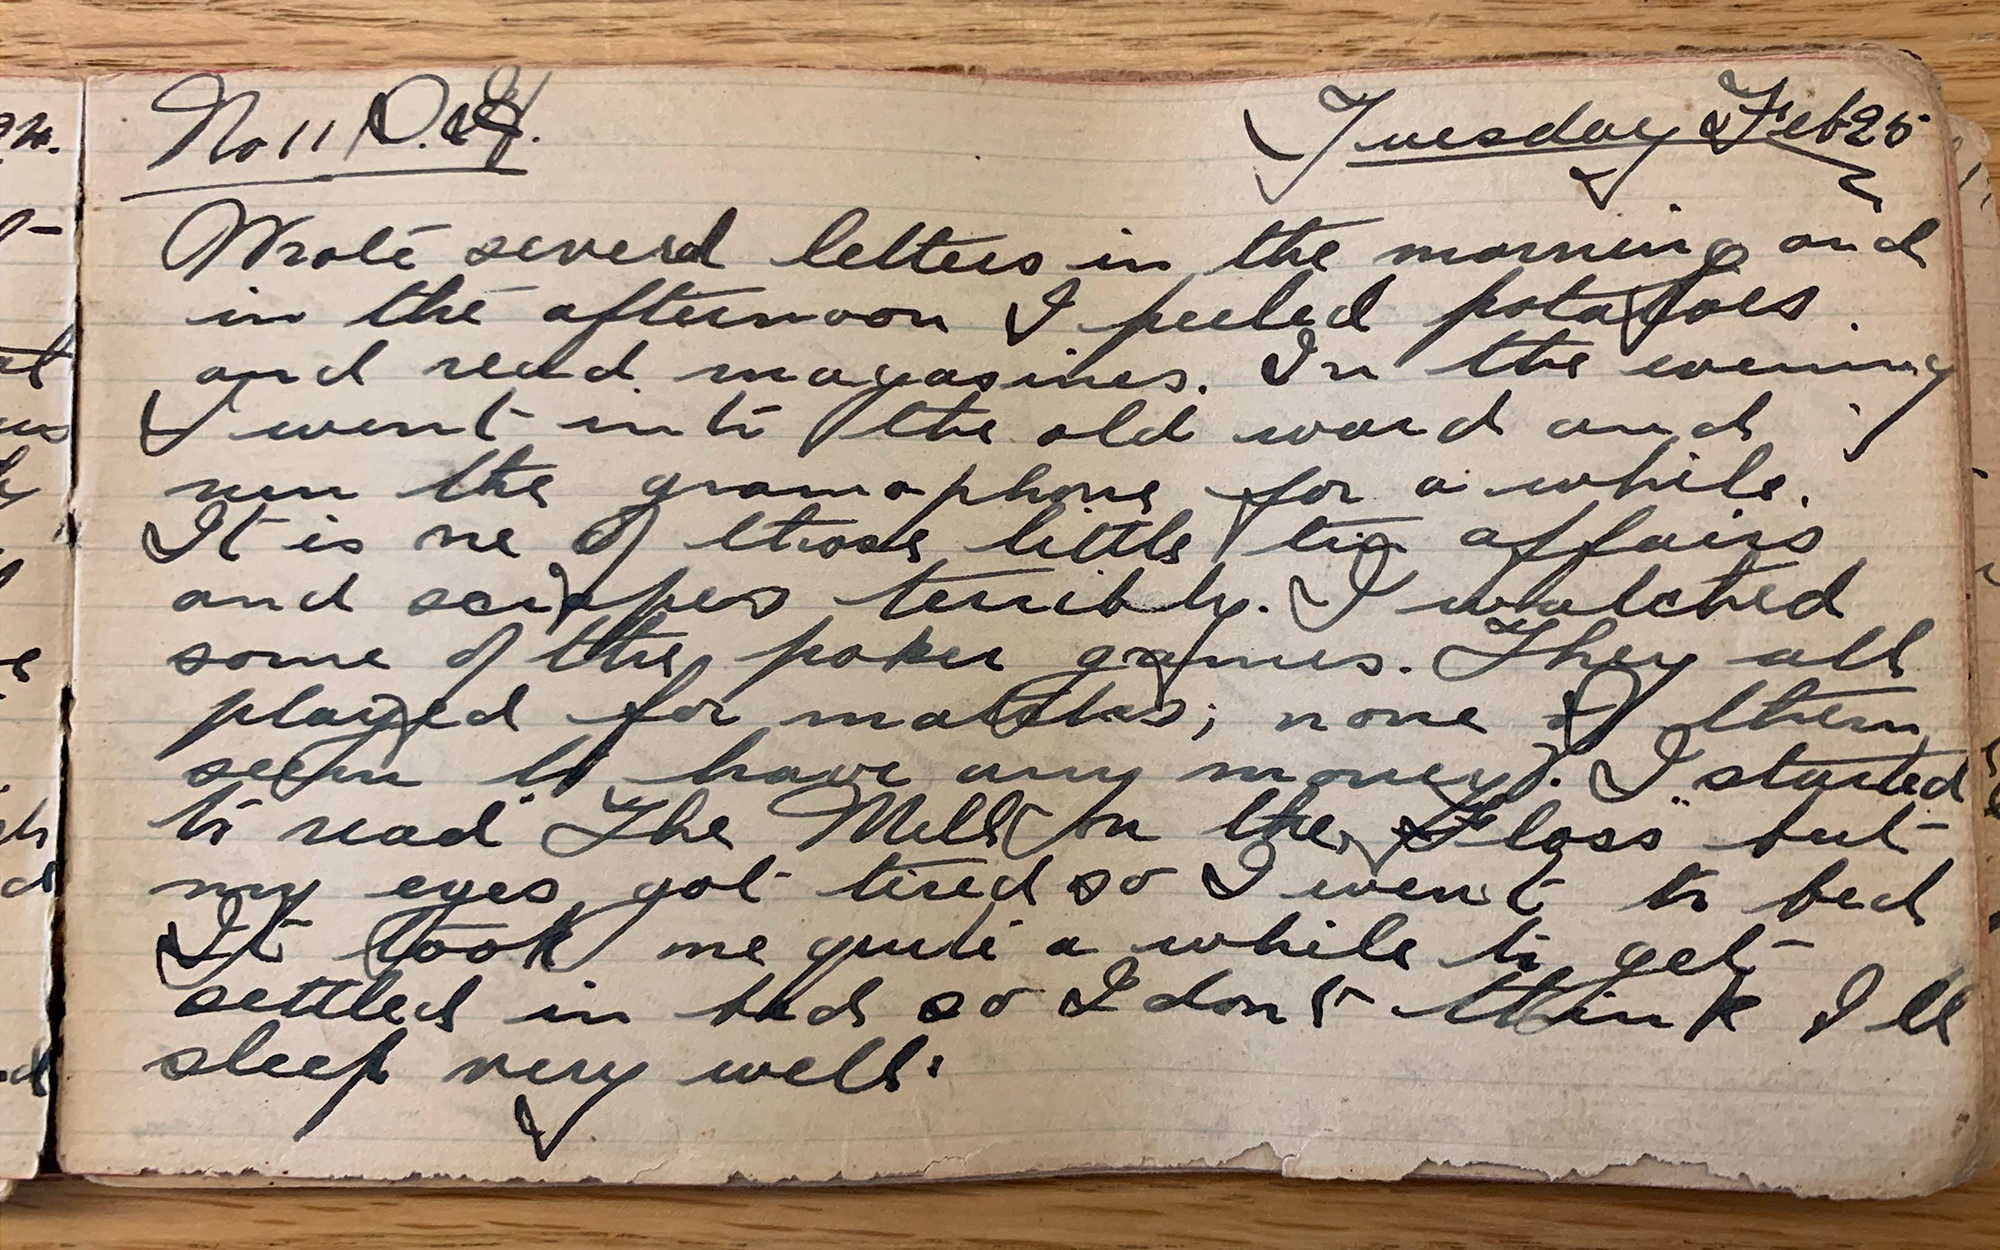 No 11 Tuesday Feb 25
Wrote several letters in the morning and
in the afternoon I peeled potatoes.
and read magasines. In the evening
I went into the old ward and
run the gramophone for a while.
It is ne of those little tin affairs
and scrapes terribly. I watched
some of the poker games. They all
played for matches; none of them
seem to have any money. I started
to read "The Mill on the Floss" but
my eyes got tired so I went to bed
It took me quite a while to get
settled in bed so I don't think I ll
sleep very well.